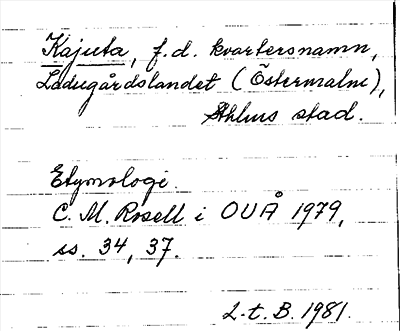 Kajuta, f.d. kvartersnamn,
Ladugårdslandet (Östermalm),
Sthlms stad.
Etymologi.
C. M. Rosell i OUÅ 1979,
ss. 34, 37.
L-t. B. 1981.